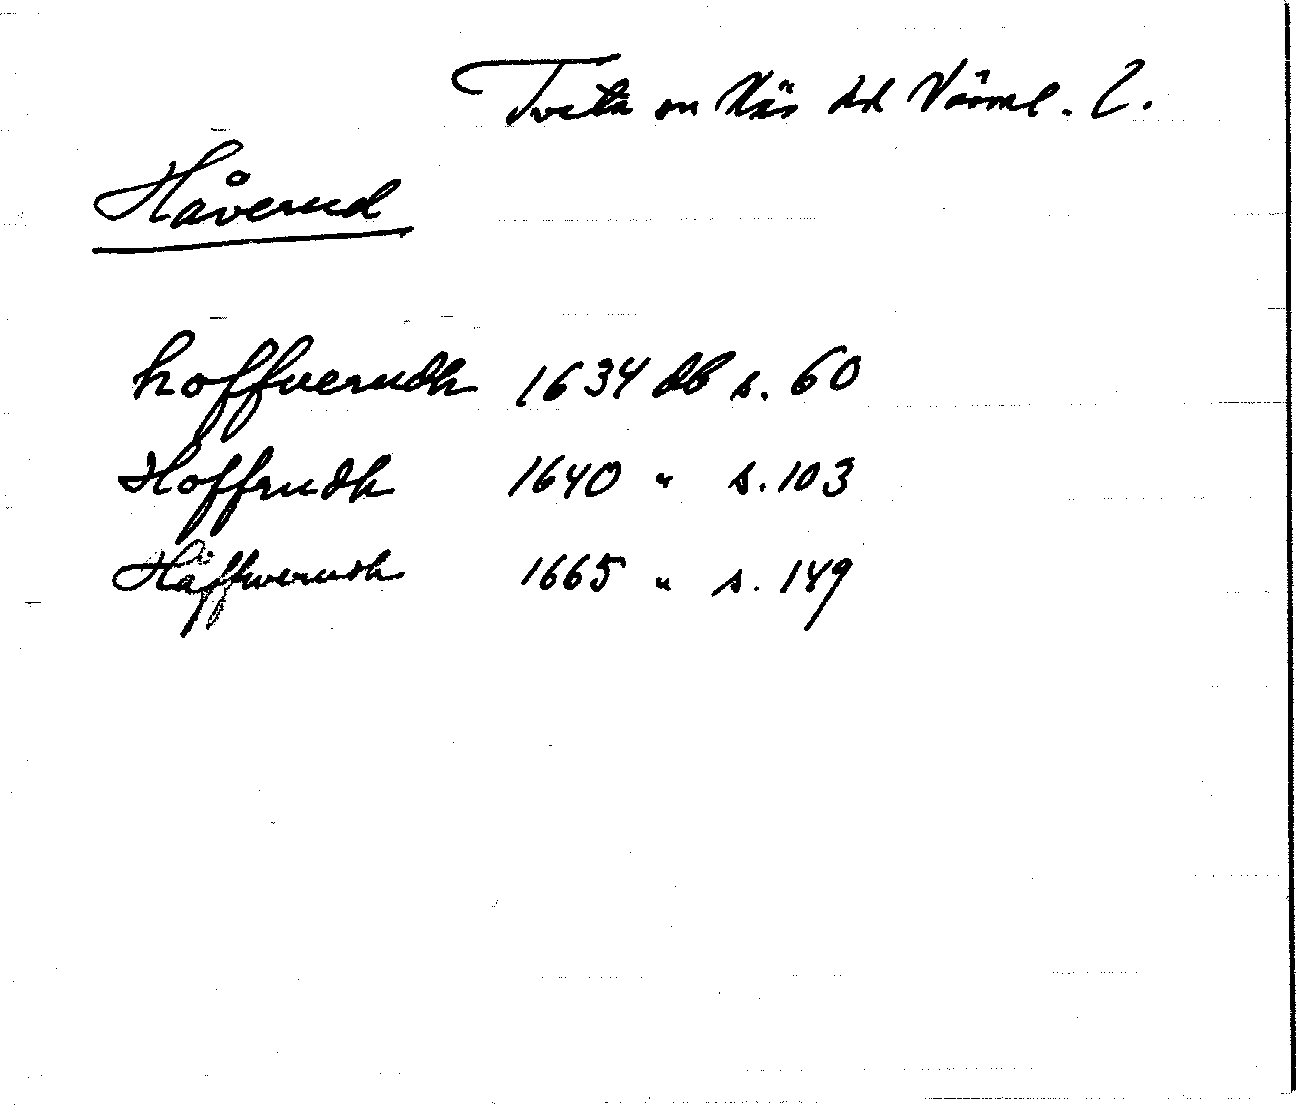 Tveta sn Näs hd Värml. l.
Håverud
hoffverudh 1634 db s. 60
Hoffrudh 1640 " s. 103
Håffwerudh 1665 " s. 149